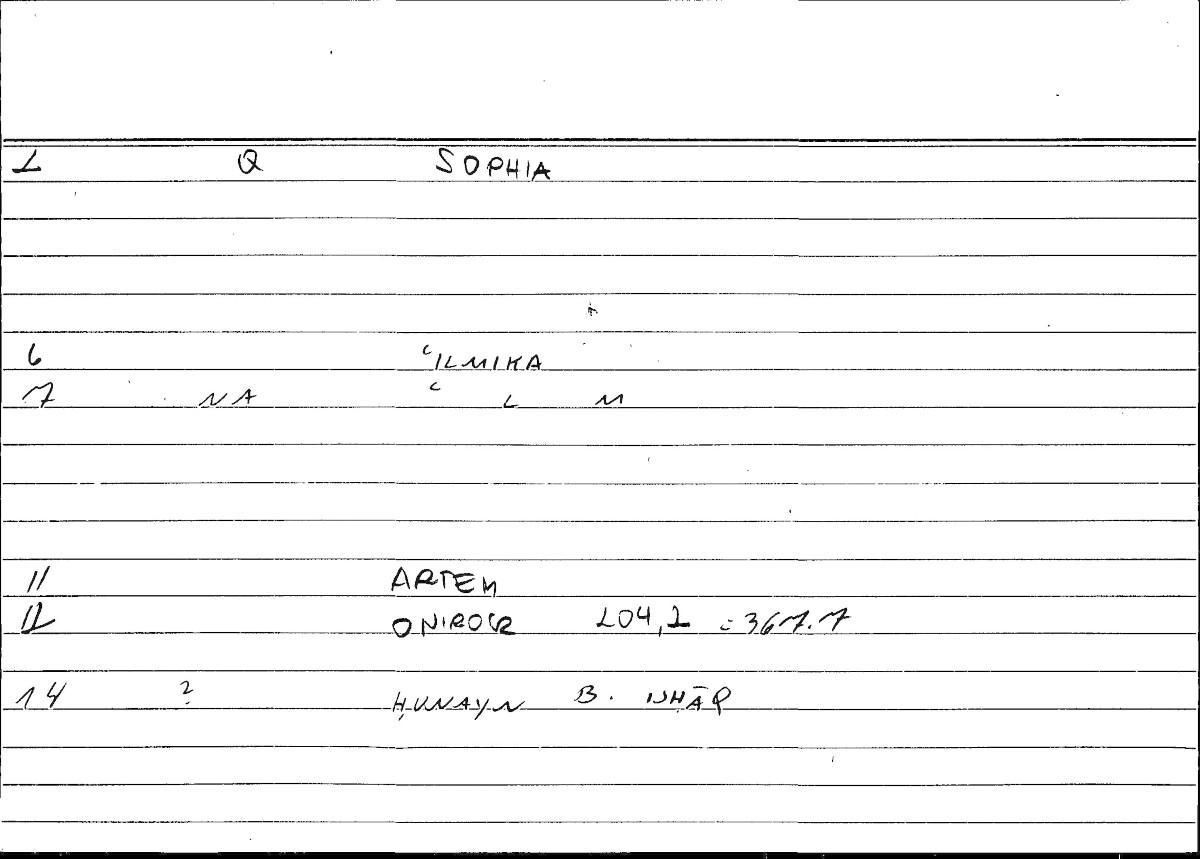 1 Q SOPHIA
6 ʿILMIKA
7 NA ʿ L M
11 ARTEM
12 ONIROCR 204,2 = 367.7
14 ? ḤUNAYN B. ISḤĀQ